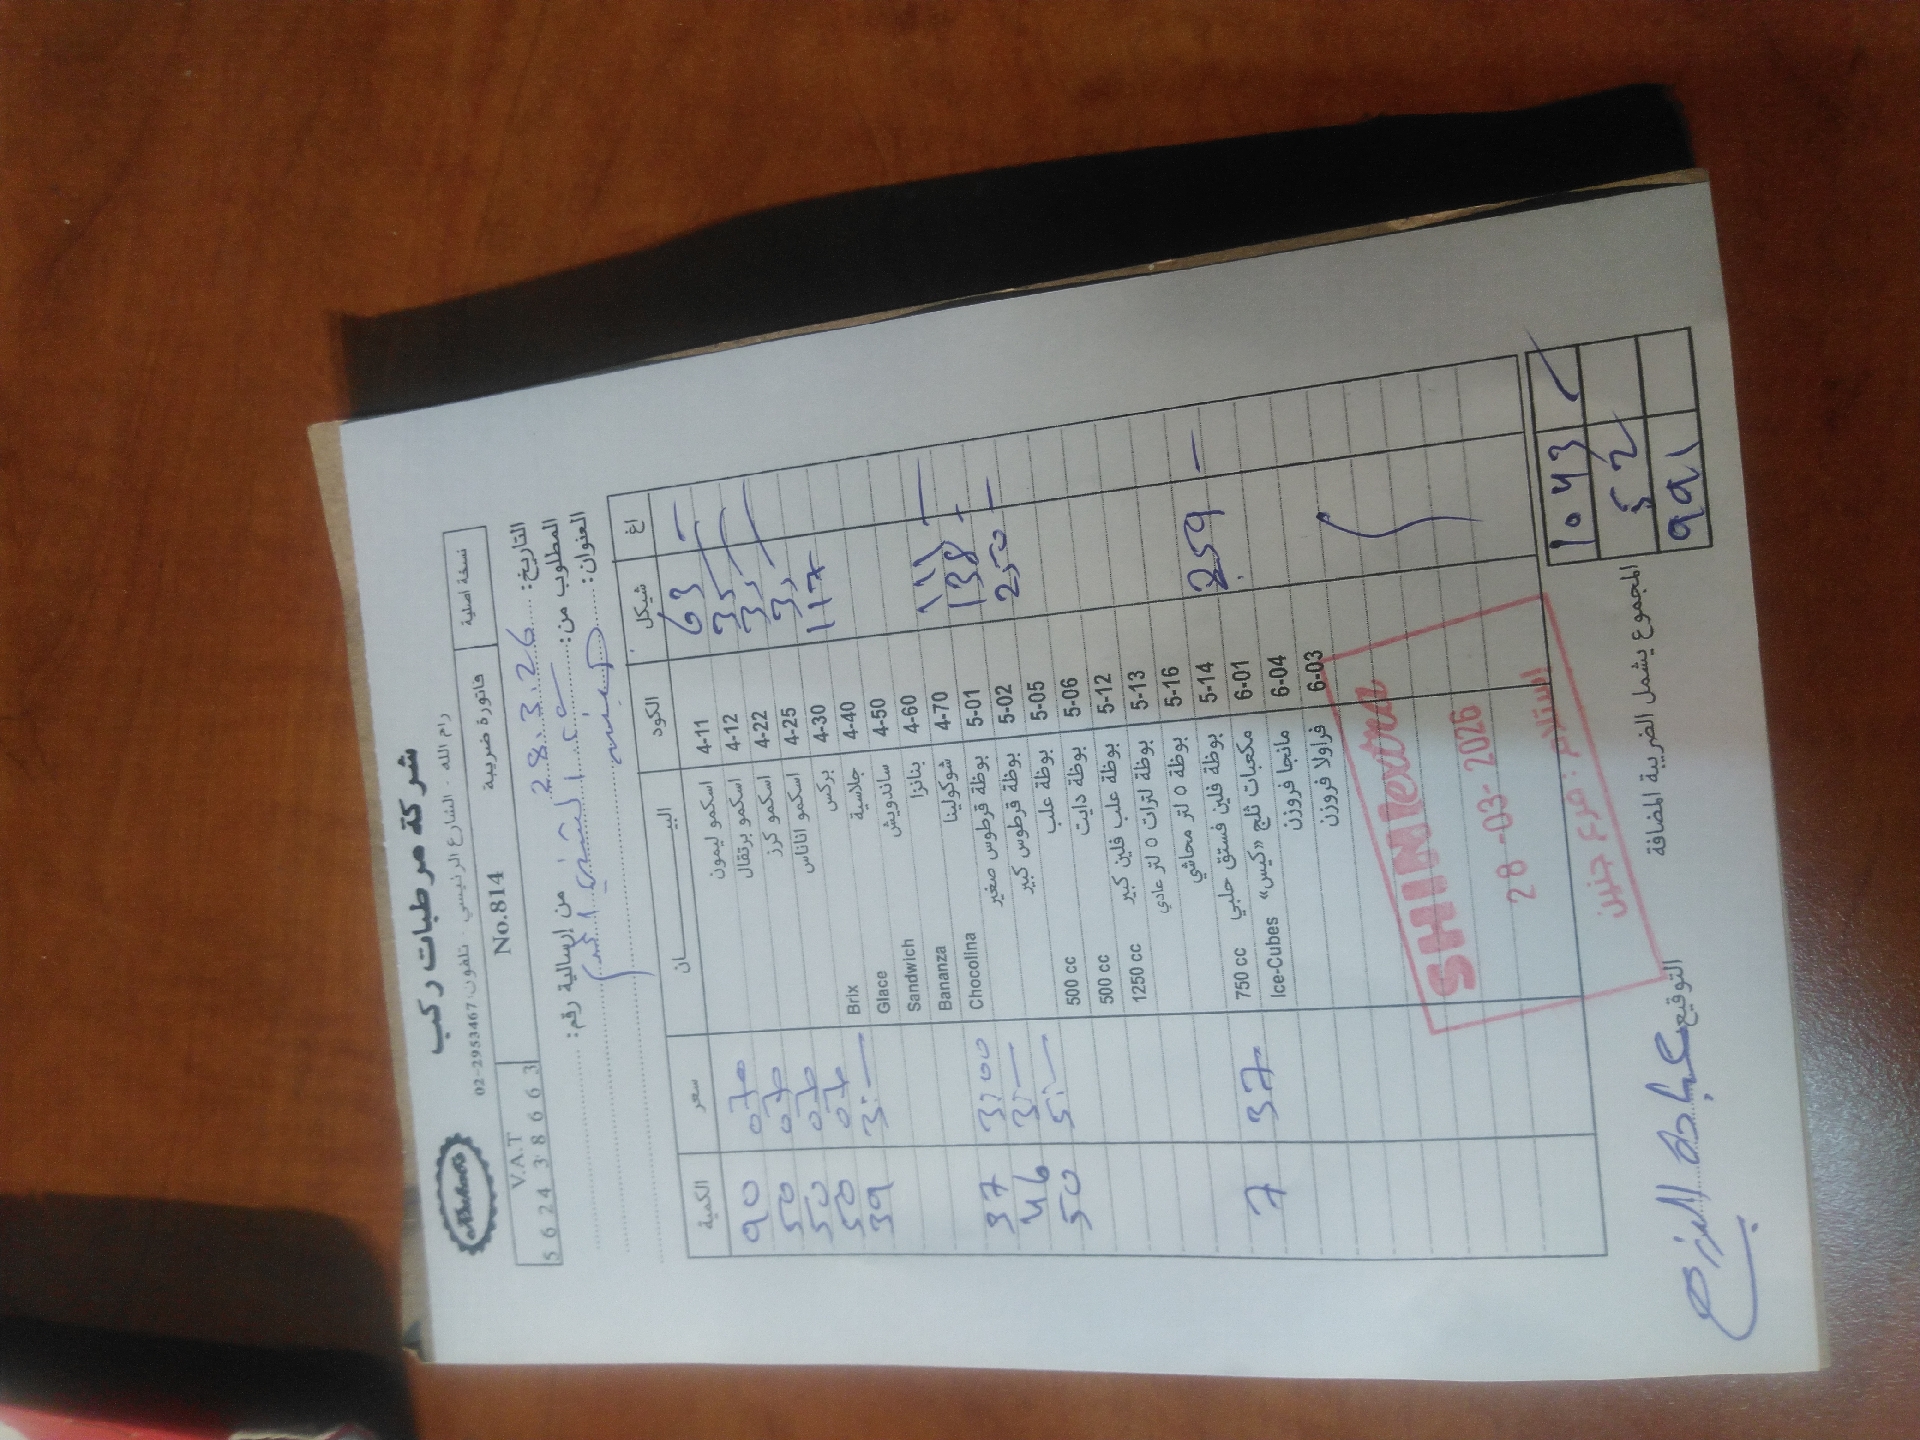 شركة مرطبات ركب
رام الله - الشارع الرئيسي - تلفون: 02-2953467
V.A.T
5 6 2 4 3 8 6 6 3
No.814
فاتورة ضريبة
نسخة اصلية
التاريخ: 28.3.26
المطلوب من:
من إرسالية رقم:
العنوان: جنين
الكمية سعر البيـــــــان الكود شيكل اغ
90 070 اسكمو ليمون 4-11 63 —
50 070 اسكمو برتقال 4-12 35
50 070 اسكمو كرز 4-22 35
50 070 اسكمو اناناس 4-25 35
39 3:— Brix بركس 4-30 117
Glace جلاسية 4-40
Sandwich ساندويش 4-50
Bananza بنانزا 4-60
37 3:00 Chocolina شوكولينا 4-70 111 —
46 3:— بوظة قرطوس صغير 5-01 138 —
50 5:— بوظة قرطوس كبير 5-02 250 —
500 cc بوظة علب 5-05
500 cc بوظة دايت 5-06
1250 cc بوظة علب فلين كبير 5-12
بوظة لترات ٥ لتر عادي 5-13
بوظة ٥ لتر محاشي 5-16
7 37 750 cc بوظة فلين فستق حلبي 5-14 259 —
Ice-Cubes مكعبات ثلج «كيس» 6-01
مانجا فروزن 6-04
فراولا فروزن 6-03
SHINIextra
28-03-2026
استلام: فرع جنين
1043
52
991
المجموع يشمل الضريبة المضافة
التوقيع